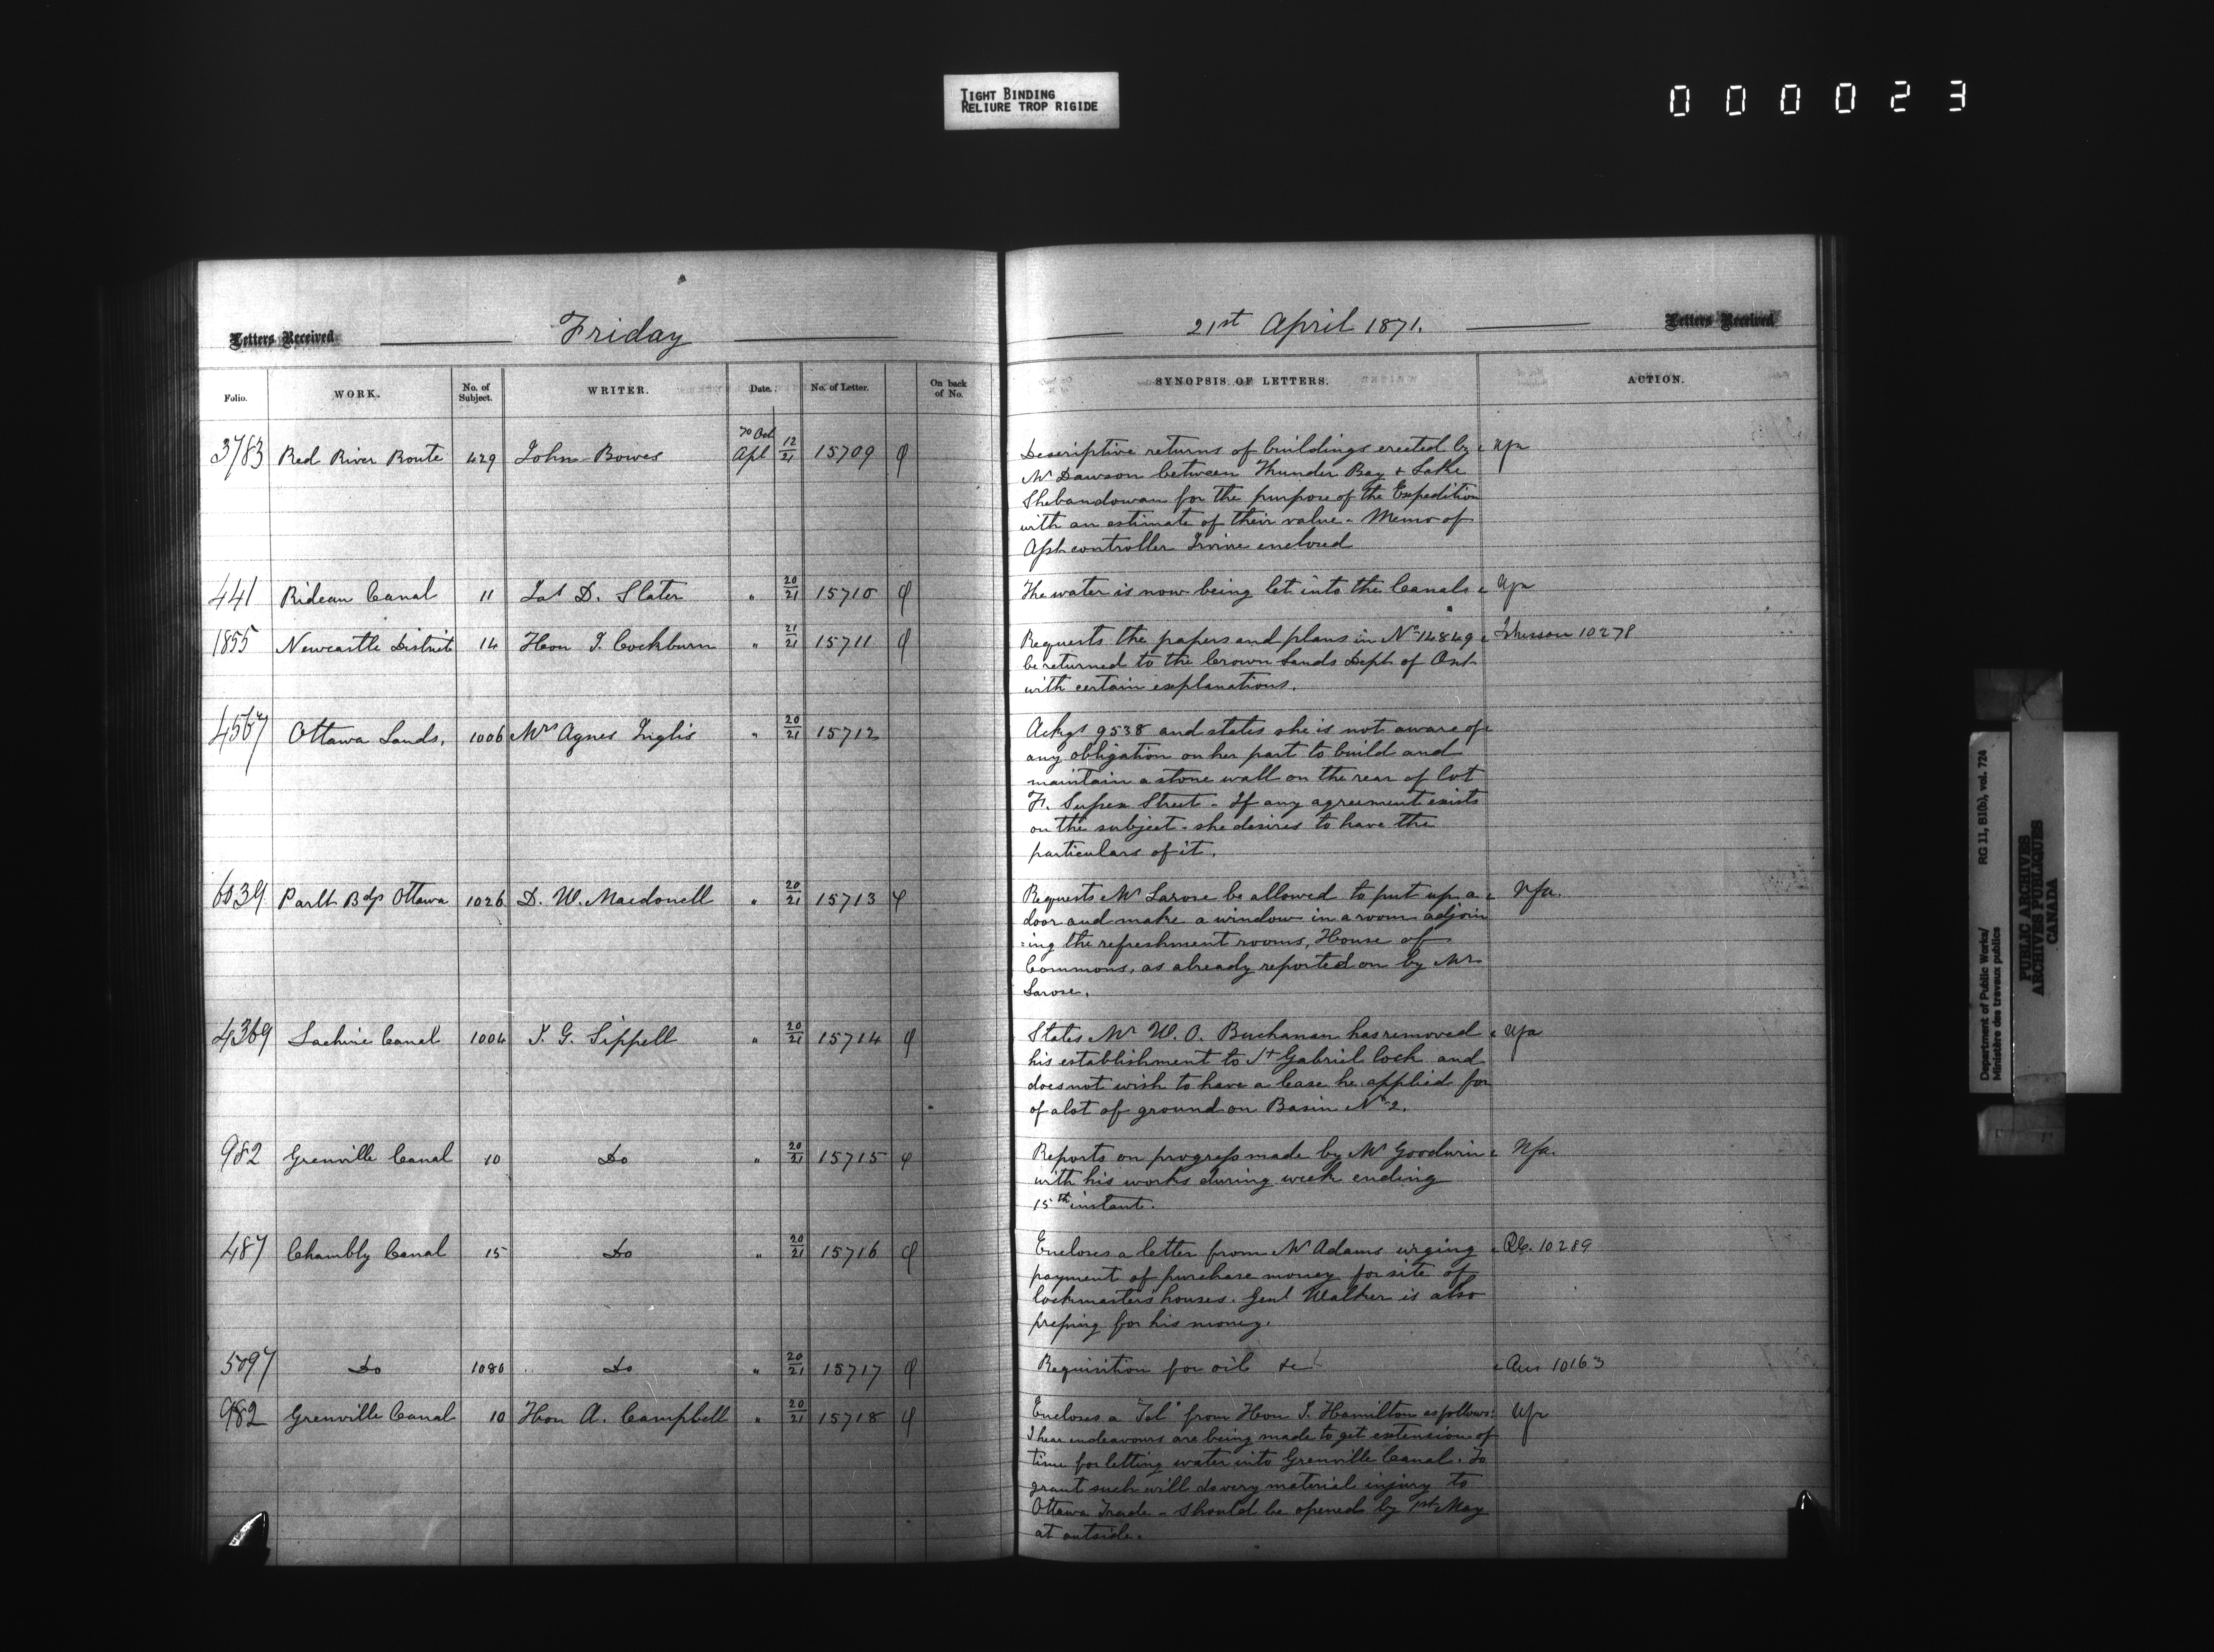 TIGHT BINDING
RELIURE TROP RIGIDE
000023
Letters Received
Friday
21st April 1871.
Letters Received
Folio. WORK. No. of Subject. WRITER. Date. No. of Letter. On back of No. SYNOPSIS OF LETTERS. ACTION.
3783 Red River Route 429 John Bowes 70 Oct Apl 12/21 15709 Descriptive returns of buildings erected by Nfa
Mr Dawson between Thunder Bay & Lake
Shebandowan for the purpose of the Expedition
with an estimate of their value - Memo of
controller Irvine enclosed
441 Rideau Canal 11 Jas D. Slater " 20/21 15710 The water is now being let into the Canals Nfa
1855 Newcastle District 14 Hon J. Cockburn " 21/21 15711 Requests the papers and plans in No 14849 10278
be returned to the Crown Lands Dept of Ont
with certain explanations.
4567 Ottawa Lands, 1006 Mrs Agnes Inglis " 20/21 15712 Ackgs 9538 and states she is not aware of
any obligation on her part to build and
maintain a stone wall on the rear of lot
F. Sussex Street - If any agreement exists
on the subject - she desires to have the
particulars of it.
6039 Parlt Bdgs Ottawa 1026 D. W. Macdonell " 20/21 15713 Requests Mr Larose be allowed to put up a Nfa.
door and make a window in a room adjoin
=ing the refreshment rooms, House of
Commons, as already reported on by Mr
Larose.
4369 Lachine Canal 1004 J. G. Sippell " 20/21 15714 States Mr W. O. Buchanan has removed Nfa
his establishment to St Gabriel lock and
does not wish to have a lease he applied for
of a lot of ground on Basin No 2.
982 Grenville Canal 10 Do " 20/21 15715 Reports on progress made by Mr Goodwin Nfa.
with his works during week ending
15th instant.
487 Chambly Canal 15 Do " 20/21 15716 Encloses a letter from Mr Adams urging 10289
payment of purchase money for site of
lockmasters houses. Genl Walker is also
pressing for his money.
5097 Do 1086 Do " 20/21 15717 Requisition for oil &c Ans 10163
982 Grenville Canal 10 Hon A. Campbell " 20/21 15718 Encloses a "Tel" from Hon J. Hamilton as follows: Nfa
I hear endeavours are being made to get extension of
time for letting water into Grenville Canal. To
grant such will do very material injury to
Ottawa Trade - Should be opened by 1st May
at outside.
Department of Public Works/ RG 11, B1(b), vol. 724
Ministère des travaux publics
PUBLIC ARCHIVES
ARCHIVES PUBLIQUES
CANADA